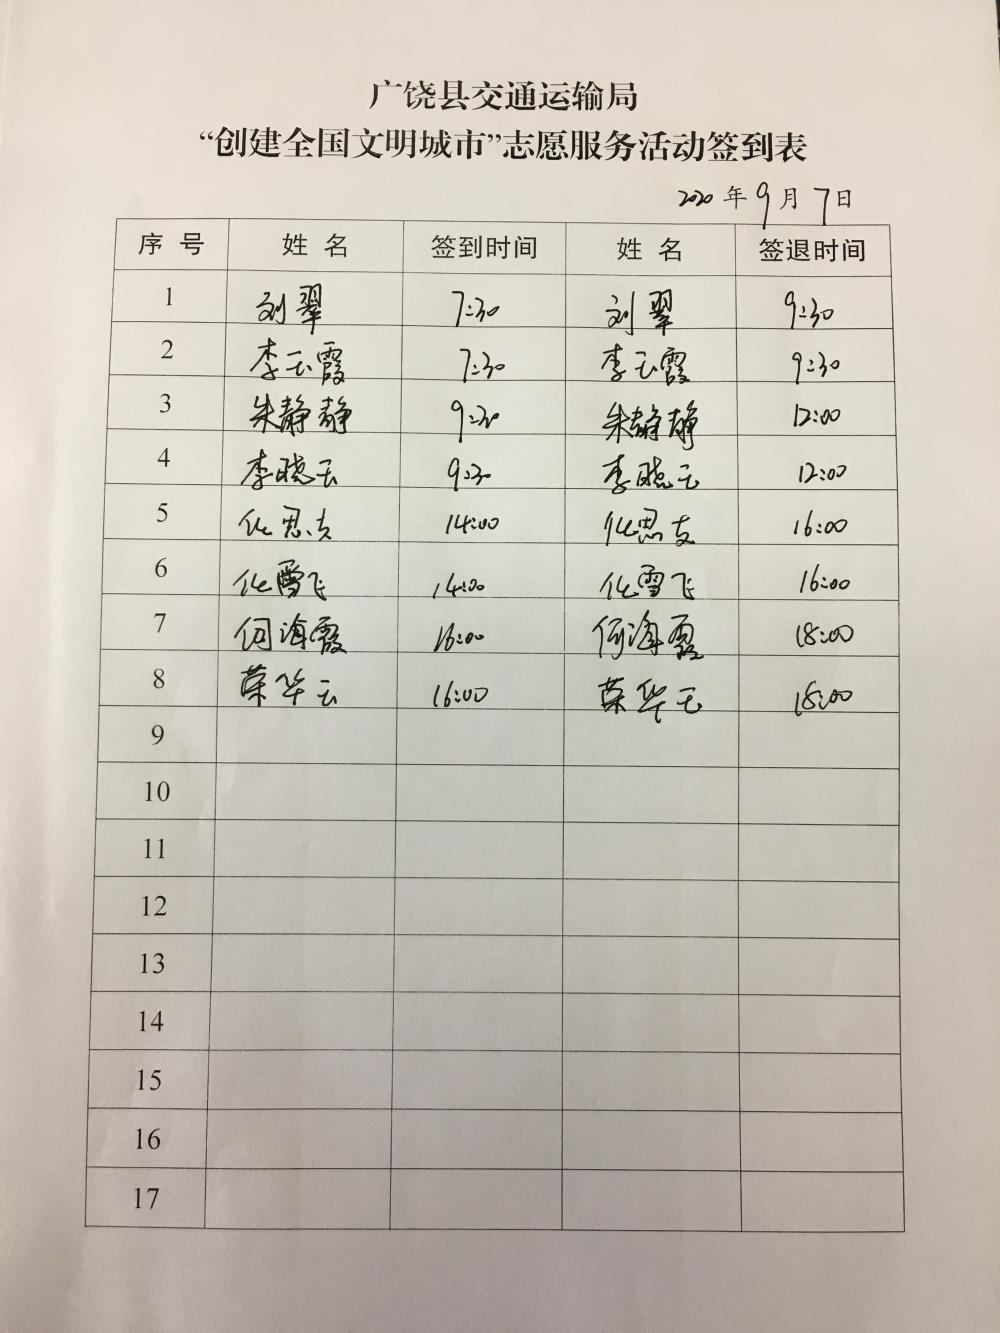 广饶县交通运输局
“创建全国文明城市”志愿服务活动签到表
2020 年 9 月 7 日
序 号 姓 名 签到时间 姓 名 签退时间
1 刘翠 7:30 刘翠 9:30
2 李玉霞 7:30 李玉霞 9:30
3 朱静静 9:30 朱静静 12:00
4 李晓云 9:30 李晓云 12:00
5 14:00 16:00
6 化雪飞 14:00 化雪飞 16:00
7 何海霞 16:00 何海霞 18:00
8 荣华云 16:00 荣华云 18:00
9
10
11
12
13
14
15
16
17